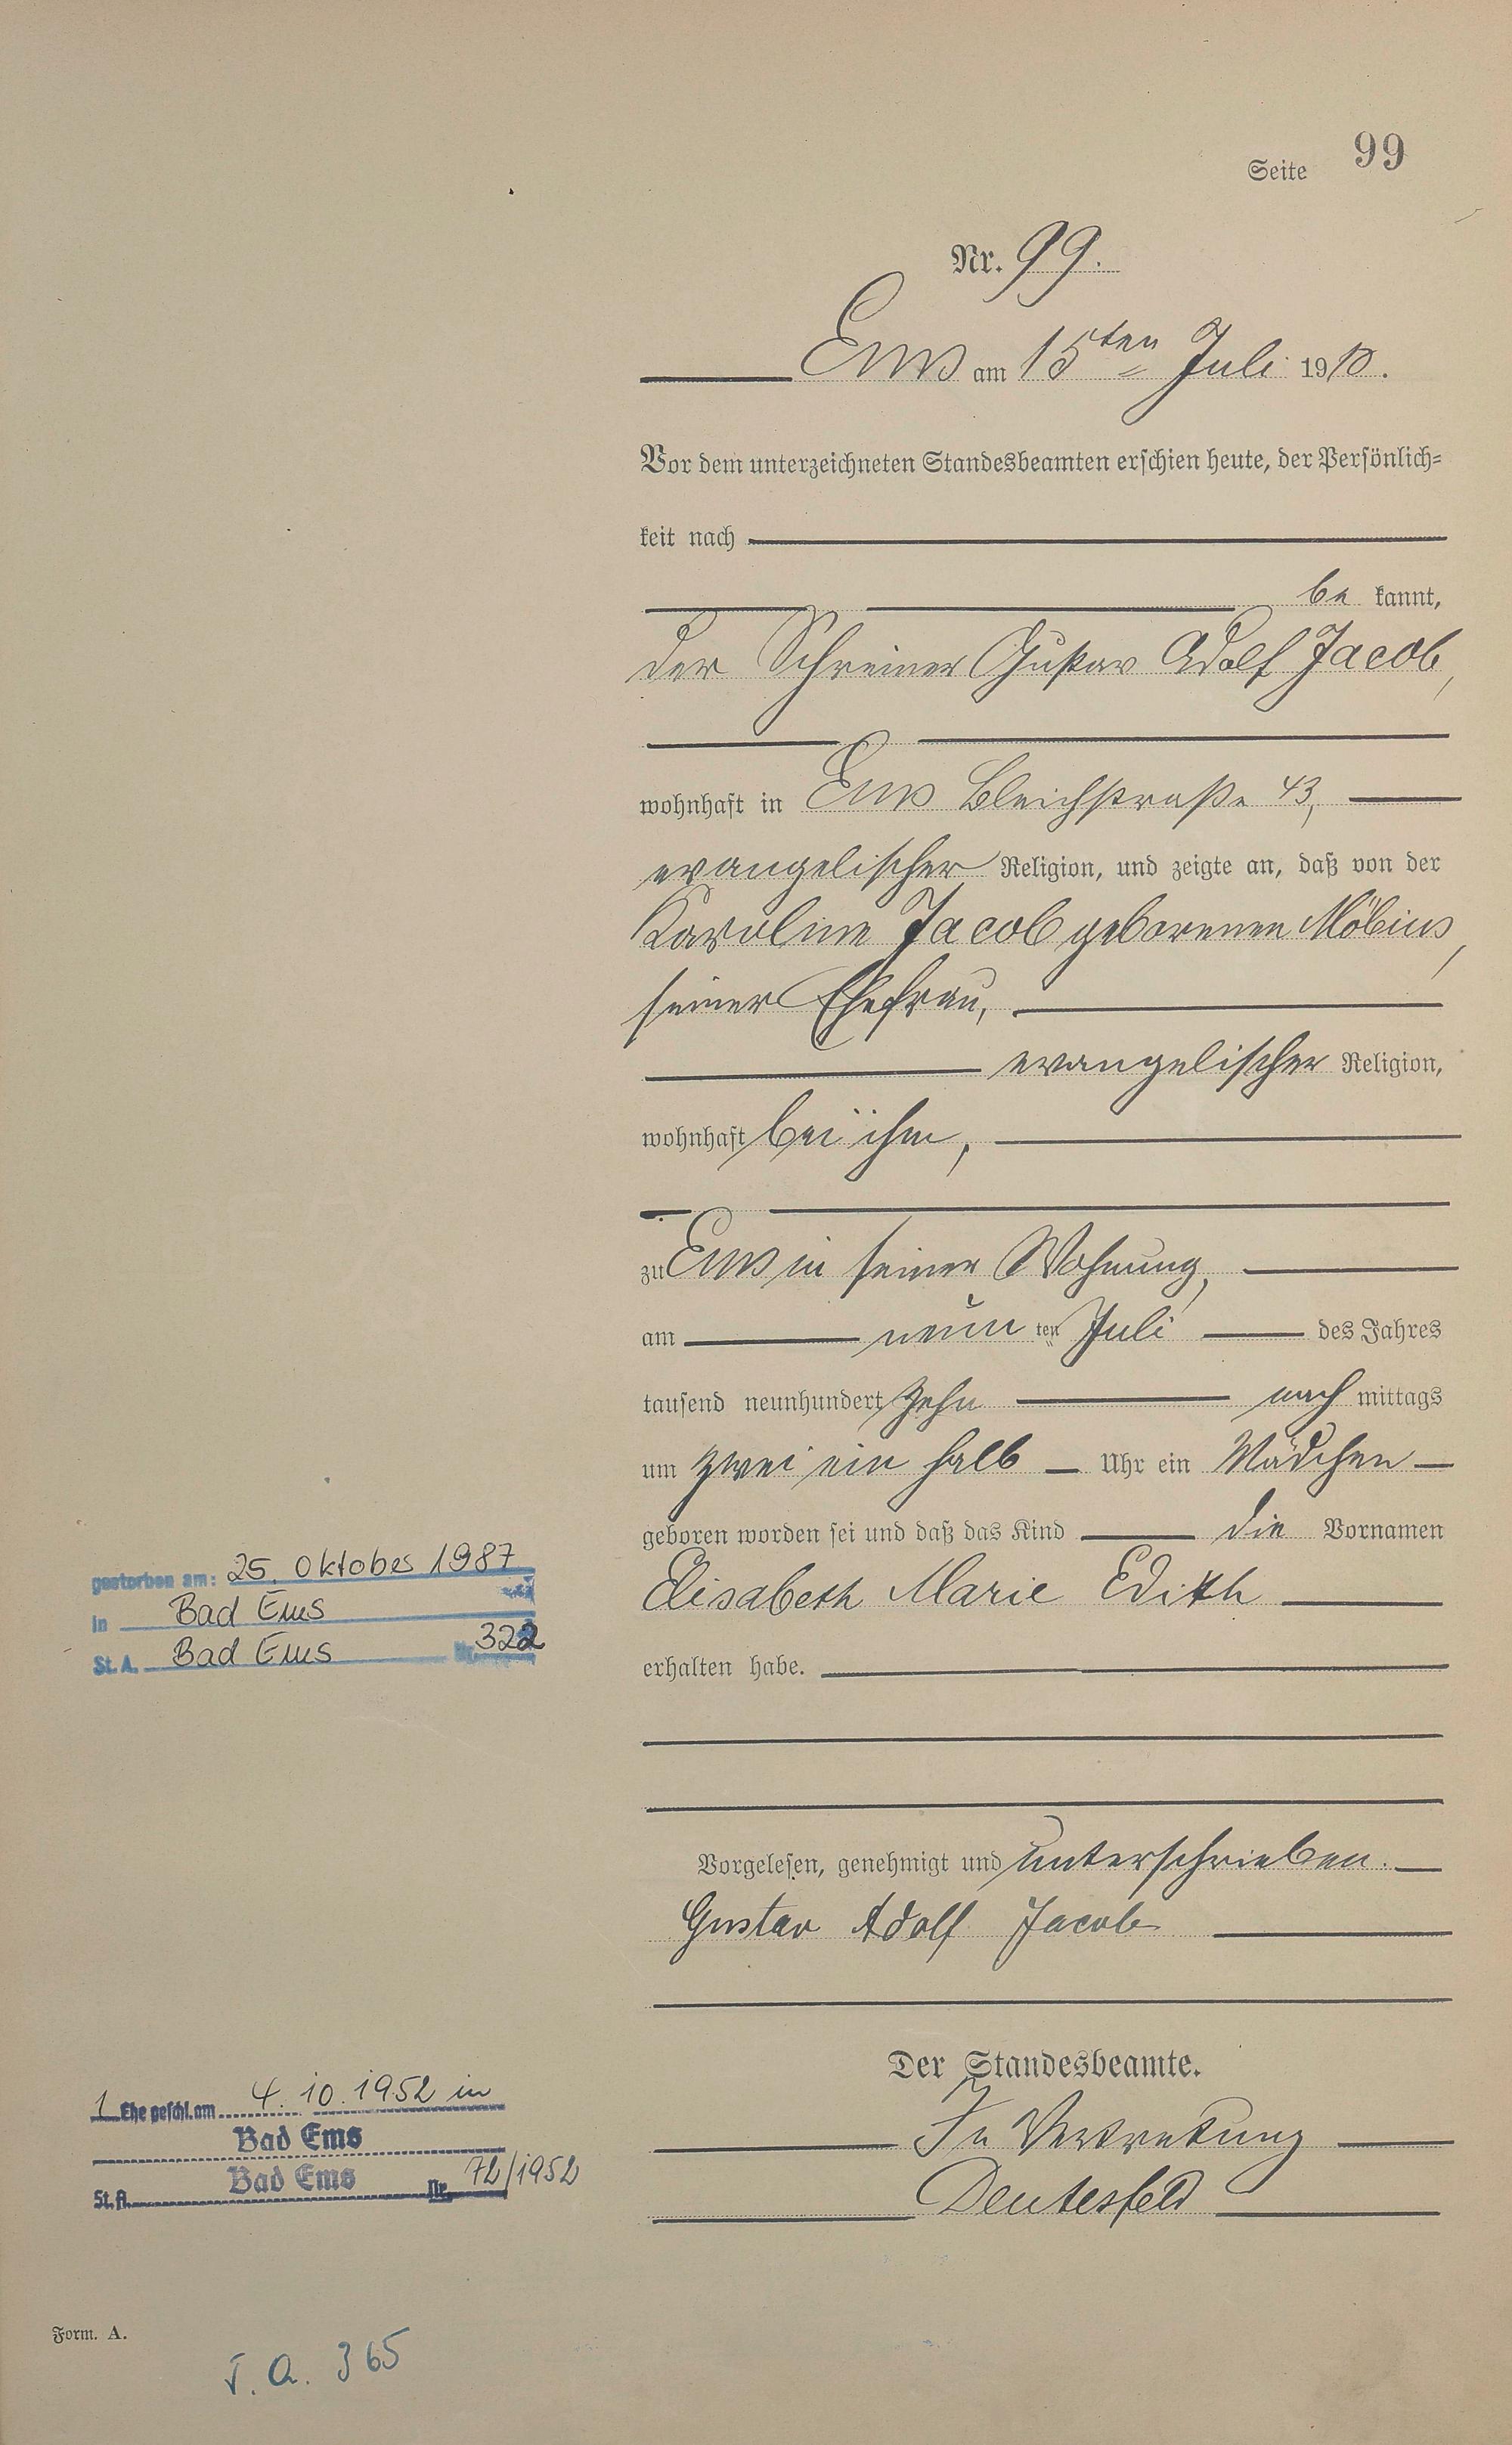 Seite 99
Nr. 99.
Ems am 15ten Juli 1910.
Vor dem unterzeichneten Standesbeamten erschien heute, der Persönlich=
keit nach
be kannt,
der Schreiner Gustav Adolf Jacob,
wohnhaft in Ems Bleichstraße 43,
evangelischer Religion, und zeigte an, daß von der
Karoline Jacob geborenen Möbius,
seiner Ehefrau,
evangelischer Religion,
wohnhaft bei ihm,
zu Ems in seiner Wohnung,
am neun ten Juli des Jahres
tausend neunhundert zehn nach mittags
um zwei ein halb Uhr ein Mädchen
geboren worden sei und daß das Kind die Vornamen
Elisabeth Marie Edith
erhalten habe.
Vorgelesen, genehmigt und unterschrieben.
Gustav Adolf Jacob
Der Standesbeamte.
In Vertretung
Deutesfeld
gestorben am: 25. Oktober 1987
in Bad Ems
St. A. Bad Ems Nr. 322
1 Ehe geschl. am 4. 10. 1952 in
Bad Ems
St. A. Bad Ems Nr. 72/1952
Form. A.
365